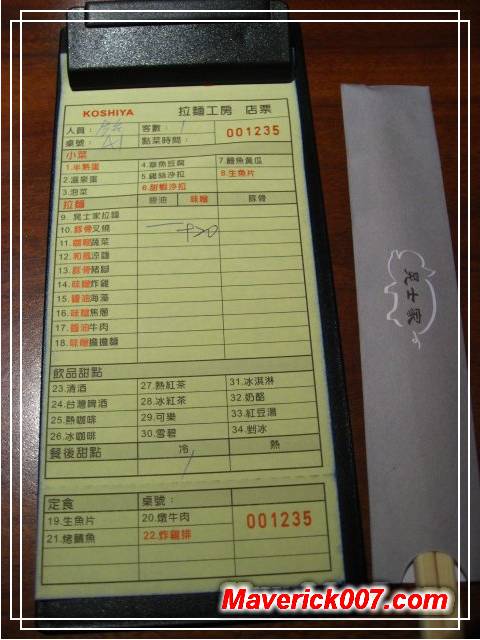 KOSHIYA 拉麵工房 店票
人員： 客數： 1
桌號： 點菜時間： 001235
小菜
1.半熟蛋 4.章魚豆腐 7.鱈魚黃瓜
2.溫泉蛋 5.雞絲沙拉 8.生魚片
3.泡菜 6.甜蝦沙拉
拉麵 醬油 味噌 豚骨
9. 晃士家拉麵
10.豚骨叉燒
11.咖喱蔬菜
12.和風涼麵
13.豚骨豬腳
14.味噌炸雞
15.醬油海藻
16.味噌焦蔥
17.醬油牛肉
18.味噌擔擔麵
飲品甜點
23.清酒 27.熱紅茶 31.冰淇淋
24.台灣啤酒 28.冰紅茶 32.奶酪
25.熱咖啡 29.可樂 33.紅豆湯
26.冰咖啡 30.雪碧 34.剉冰
餐後甜點 冷 熱
1
定食 桌號：
19.生魚片 20.燉牛肉 001235
21.烤鯖魚 22.炸雞排
晃士家
Maverick007.com